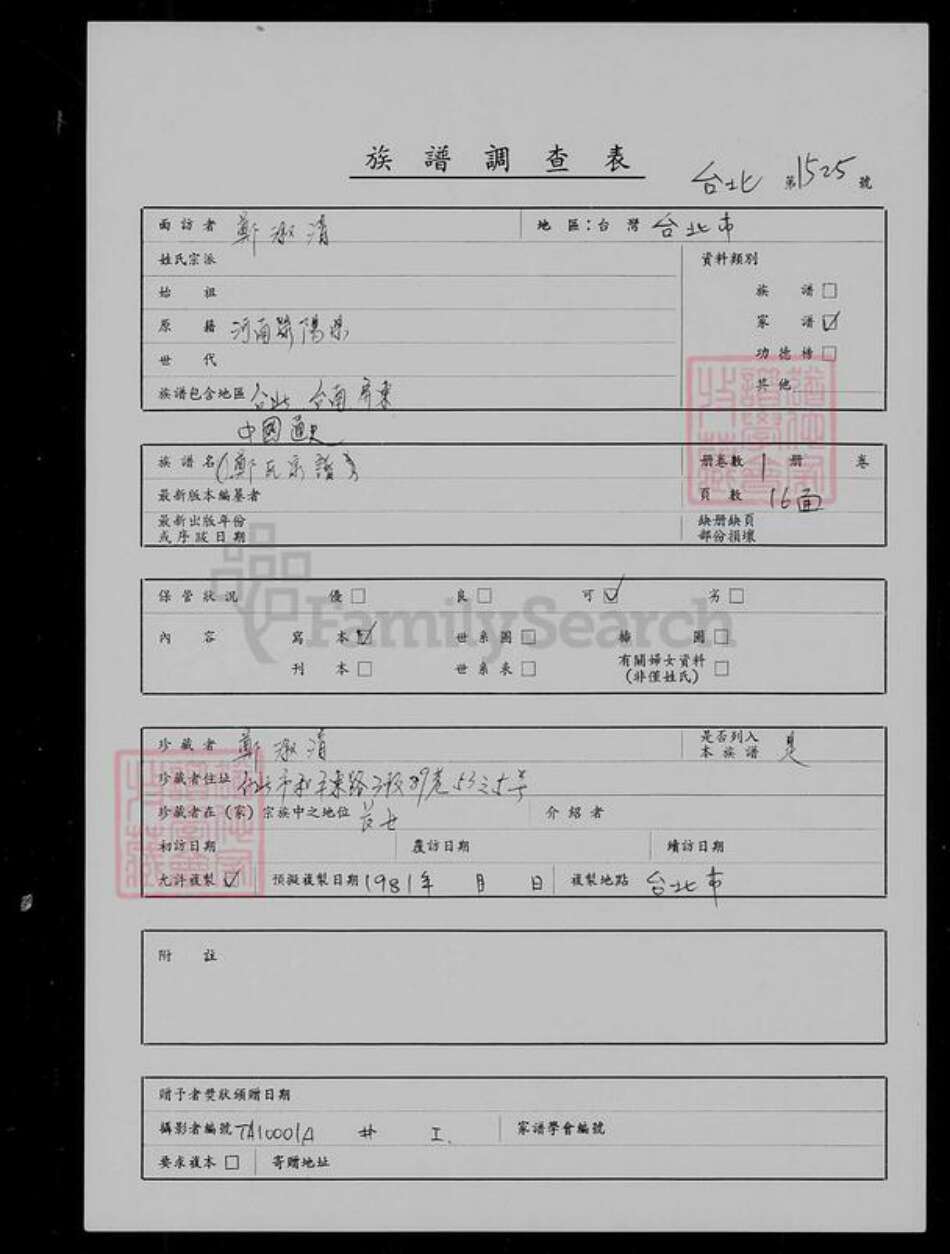 族譜調查表
台北 第1525號
面訪者 鄭淑清 地區:台灣 台北市
姓氏宗派 資料類別
始祖 族譜□
原籍 河南滎陽縣 家譜☑
世代 功德榜□
族譜包含地區 台北 台南 屏東 其他
中國通史
族譜名 (鄭氏家譜) 册卷數 1 册 卷
最新版本編纂者 頁數 16面
最新出版年份 缺册缺頁
或序跋日期 部份損壞
保管狀況 優□ 良□ 可☑ 劣□
內容 寫本☑ 世系圖□ 插圖□
刊本□ 世系表□ 有關婦女資料□
(非僅姓氏)
FamilySearch
珍藏者 鄭淑清 是否列入
本族譜 是
珍藏者住址 台北市和平東路三段89巷53之5号
珍藏者在(家)宗族中之地位 長女 介紹者
初訪日期 覆訪日期 續訪日期
允許複製☑ 預擬複製日期 1981年 月 日 複製地點 台北市
附註
贈予者獎狀頒贈日期
攝影者編號 TA10001A # I. 家譜學會編號
要求複本□ 寄贈地址